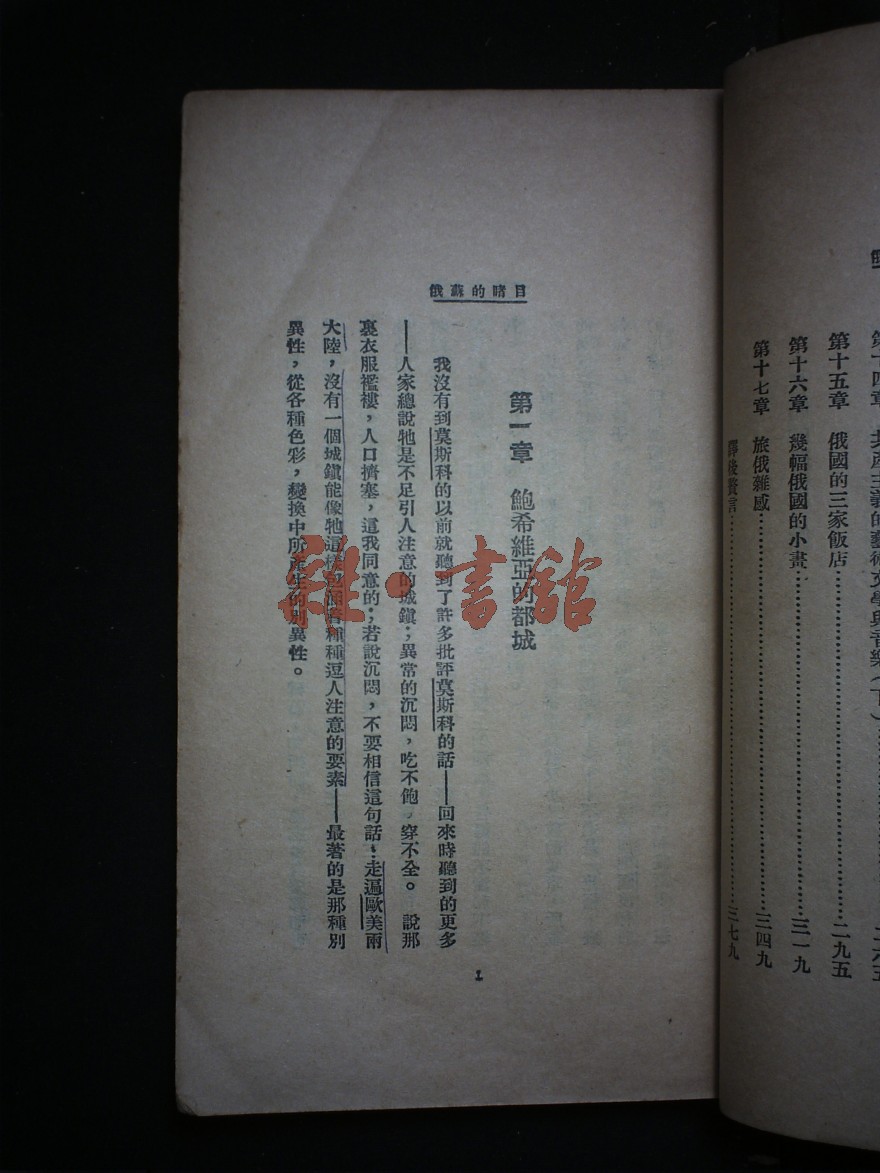 第十四章 共產主義的藝術文學與音樂（下）
第十五章 俄國的三家飯店……二九五
第十六章 幾幅俄國的小畫……三一九
第十七章 旅俄雜感……三四九
譯後贅言……三七九
俄蘇的睹目
第一章 鮑希維亞的都城
我沒有到莫斯科的以前就聽到了許多批評莫斯科的話——回來時聽到的更多
——人家總說牠是不足引人注意的城鎭；異常的沉悶，吃不飽，穿不全。說那
裏衣服襤褸，人口擠塞，這我同意的；若說沉悶，不要相信這句話：走遍歐美兩
大陸，沒有一個城鎭能像牠這樣包涵着種種逗人注意的要素——最著的是那種別
異性，從各種色彩，變換中所產生的別異性。
1
雜·書館